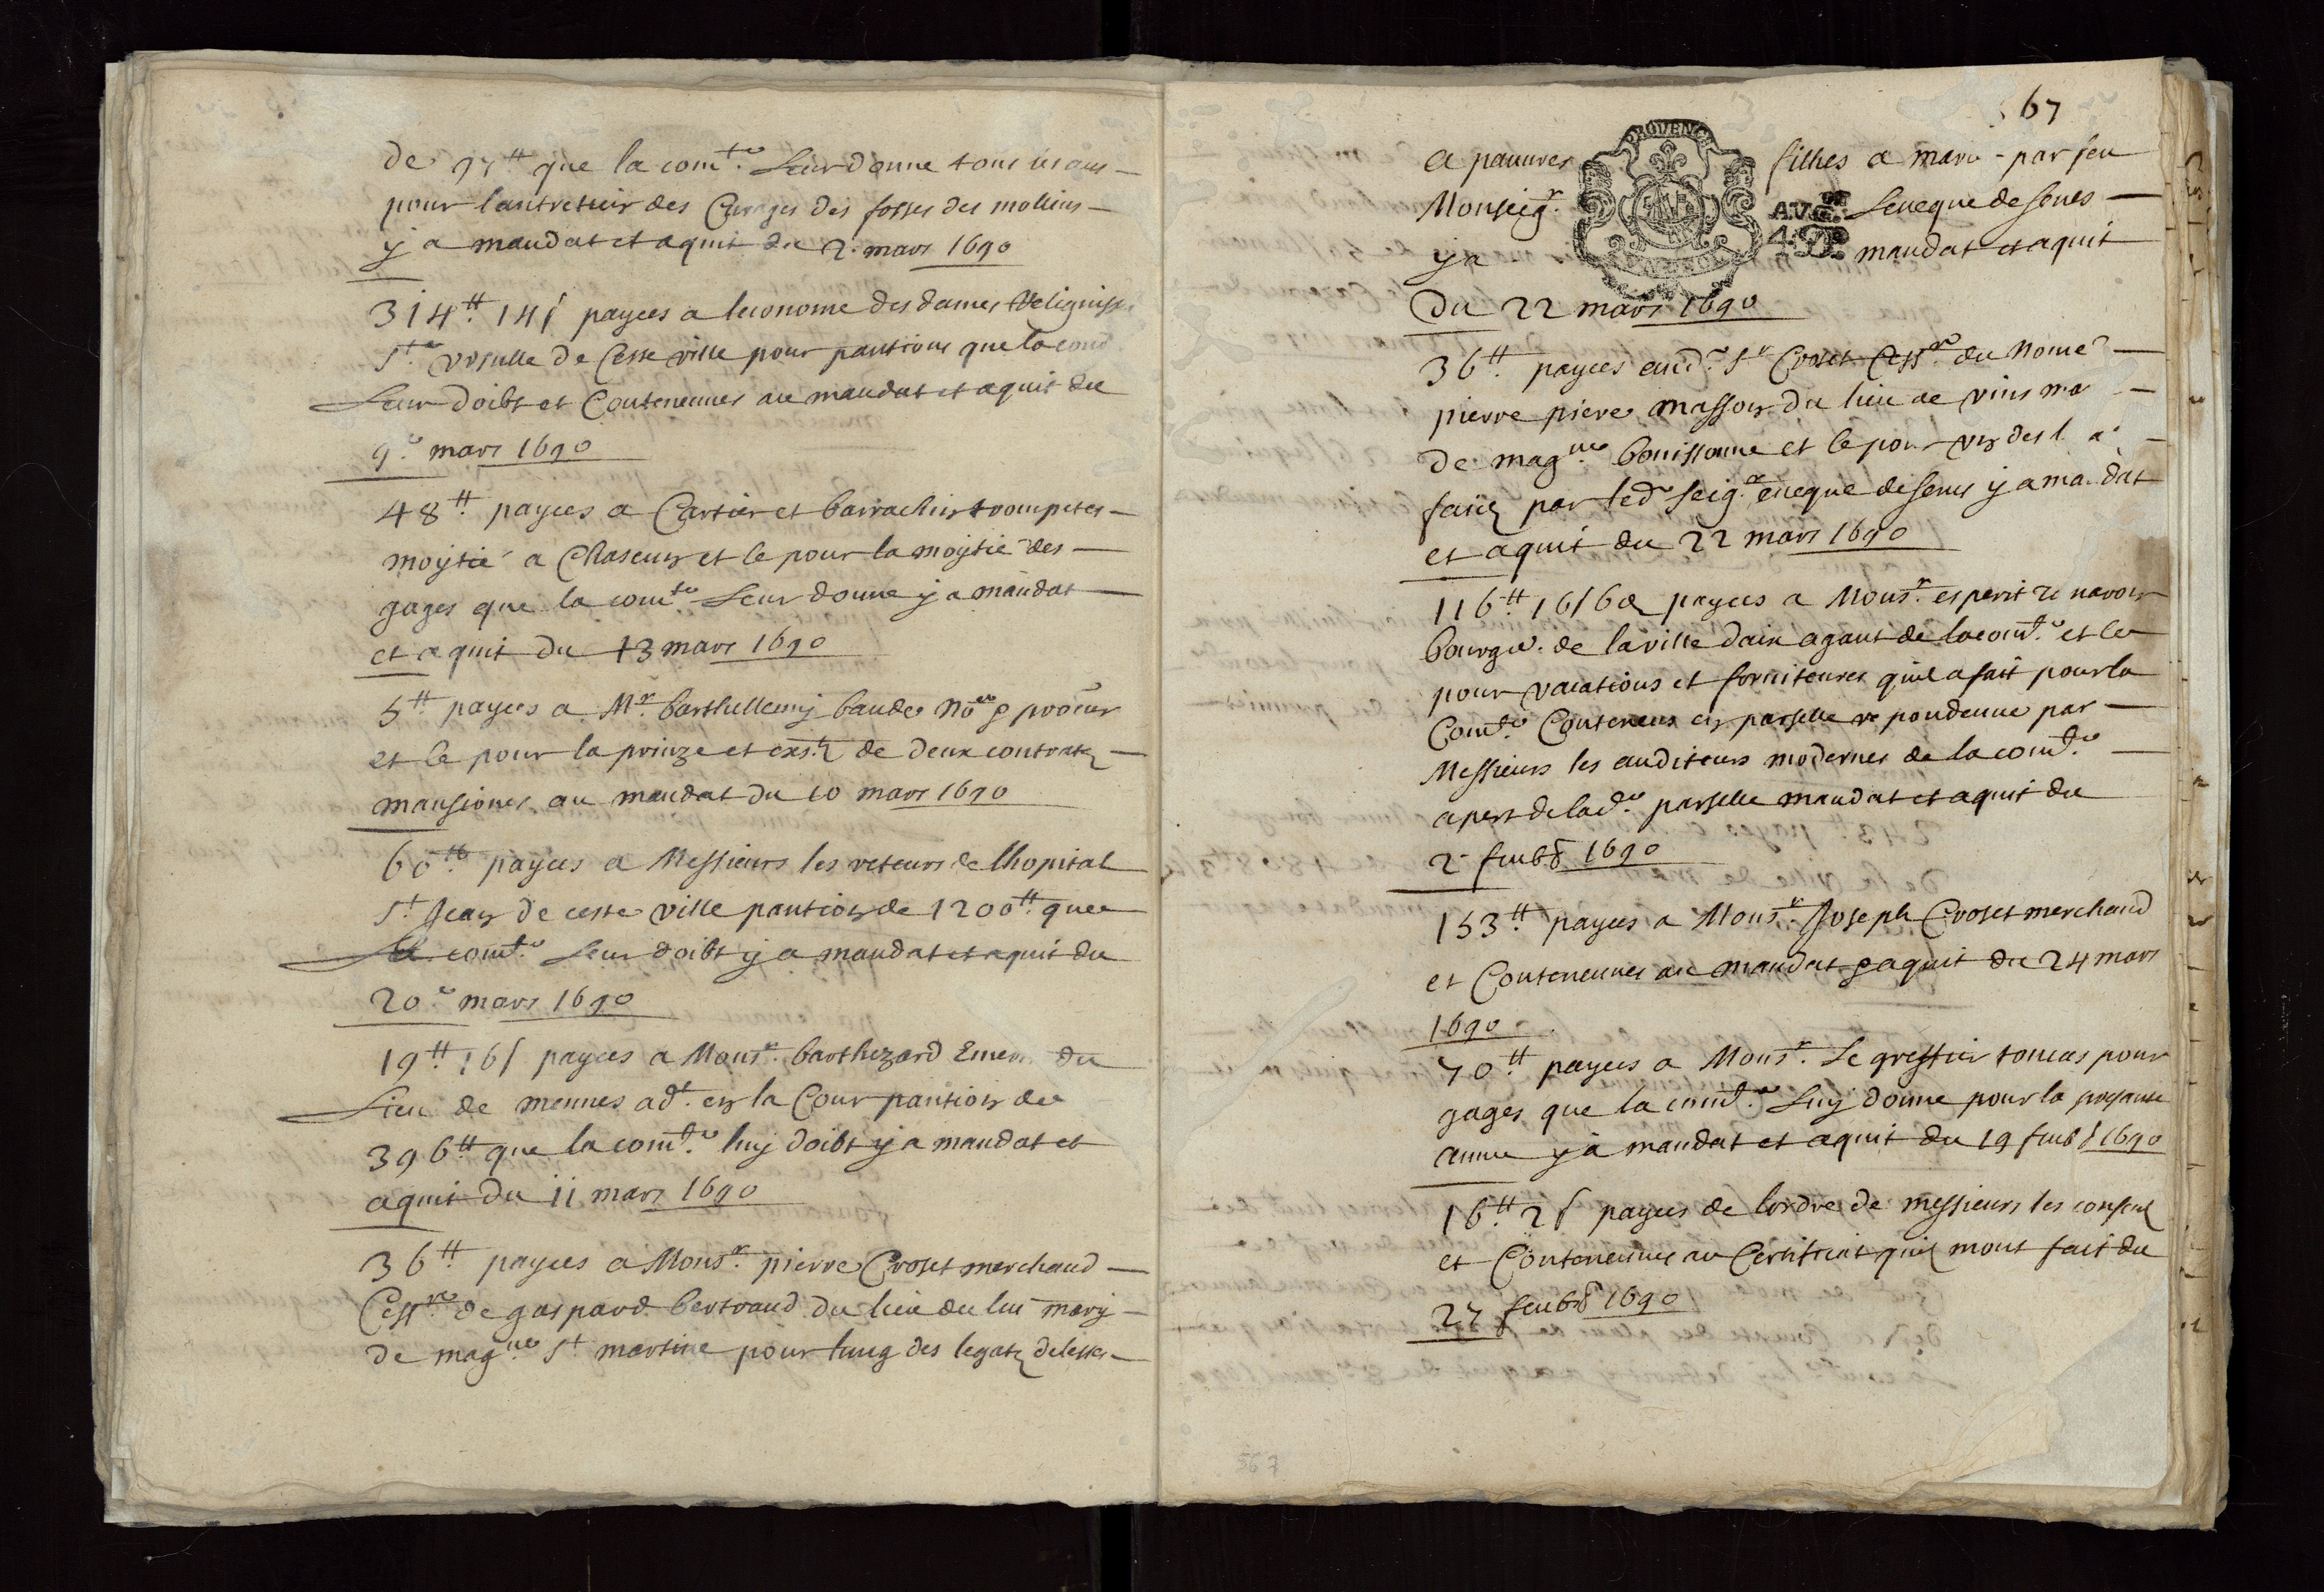 de 97ᵗᵗ que la comᵗᵉ. Leur donne tous les ans —
pour lantretien des Curages des fosses des mollins —
y a mandat et aquit du 2. mars 1690
314ᵗᵗ. 14ſ payees a leconome des dames Religiuss.
Sᵗᵉ Vrsulle de Ceste ville pour pantions que la com
Leur doibt et Conteneues au mandat et aquit du
9ᵉ mars 1690
48ᵗᵗ. payees a Cartier et barrachin trompetes —
moytié a Chascun et ce pour la moytié des —
gages que la comᵗᵉ Leur donne y a mandat —
et aquit du 13 mars 1690
5ᵗᵗ. payees a Mʳ. barthellemy baude Noʳᵉ & proĉur
et ce pour la prinze et exsᵗ. de deux contratz —
mansiones au mandat du 10 mars 1690
60ᵗᵗ payees a Messieurs les reteurs de lhopital
Sᵗ Jean de ceste ville pantion de 1200ᵗᵗ. que
La comᵗᵉ. Leur doibt y a mandat et aquit du
20ᵉ mars 1690
19ᵗᵗ 16ſ payees a Monsʳ. barthezard Emeri du
Lieu de mennes adᵗ. en la Cour pantion de
396ᵗᵗ que la comᵗᵉ. luy doibt y a mandat et
aquit du 11 mars 1690
36ᵗᵗ payees a Monsʳ. pierre Croset merchand —
Cessʳᵉ de gaspard bertrand du lieu du luc mary —
de magⁿᵉ. Sᵗ martine pour lung des legatz delesses —
67
PROVENCE
a pauures filhes a marie par feu
Monseigʳ. Leueque de senes —
AVG.
4. D.
y a mandat et aquit
Du 22 mars 1690
36ᵗᵗ. payees audᵗ Sʳ Croset Cessʳᵉ. du Nomé —
pierre piere masson du lieu de vins ma —
de magⁿᵉ. bouissonne et ce pour vn des l —
faitz par ledᵗ seigʳ. eueque de senes y a mandat
et aquit du 22 mars 1690
116ᵗᵗ. 16ſ 6d payees a Monsʳ. esperit
bourgᵒⁱˢ. de la ville daix agant de la comᵗᵉ. et ce
pour vacations et fornitures quil a fait pour la
Comᵗᵉ. Conteneus en parselle repondeue par —
Messieurs les auditeurs modernes de la comᵗᵉ. —
apert de ladᵗᵉ. parselle mandat et aquit du
2ᵉ feubʳ 1690
153ᵗᵗ. payees a Monsʳ. Joseph Croset merchand
et Conteneues au mandat & aquit du 24 mars
1690
70ᵗᵗ payees a Monsʳ. Le greffier toucas pour
gages que la comᵗᵉ. Luy donne pour la presante
annee y a mandat et aquit du 19 feubʳ 1690
16ᵗᵗ. 2ſ payees de lordre de messieurs les consulz
et Conteneues au Certificat quilz mont fait du
27 feubʳ 1690
567